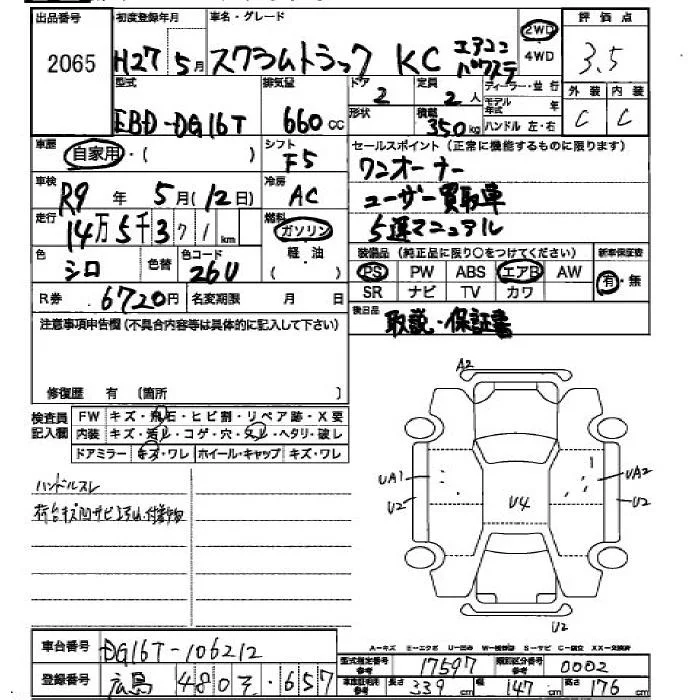 出品番号 初度登録年月 車名・グレード 評価点
2065 H27 5月 スクラムトラック KC エアコン パワステ 2WD 4WD 3.5
型式 排気量 ドア 2 定員 2人 ディーラー・並行 外装 内装
EBD-DG16T 660cc 形状 積載 350kg モデル年式 年 ハンドル 左・右 C C
車歴 自家用・( ) シフト F5 セールスポイント(正常に機能するものに限ります)
ワンオーナー
車検 R9年 5月(12日) 冷房 AC
ユーザー買取車
走行 14万5千371km 燃料 ガソリン 軽・油 ( )
5速マニュアル
色 シロ 色替 色コード 26U
装備品(純正品に限り○をつけてください) 新車保証書
PS PW ABS エアB AW 有・無
SR ナビ TV カワ
R券 6720円 名変期限 月 日
後日品 取説・保証書
注意事項申告欄(不具合内容等は具体的に記入して下さい)
修復歴 有 〔箇所 〕
検査員記入欄 FW キズ・飛石・ヒビ割・リペア跡・X要
内装 キズ・汚レ・コゲ・穴・スレ・ヘタリ・破レ
ドアミラー キズ・ワレ ホイール・キャップ キズ・ワレ
ハンドルスレ
A2
UA1
U2
U4
UA2
U2
U2
A-キズ E-エクボ U-凹み W-補修跡 S-サビ C-腐食 XX-交換済
車台番号 DG16T-106212
型式指定番号 参考 17597 類別区分番号 参考 0002
登録番号 広島 480 そ ・657
長さ 339cm 幅 147cm 高さ 176cm